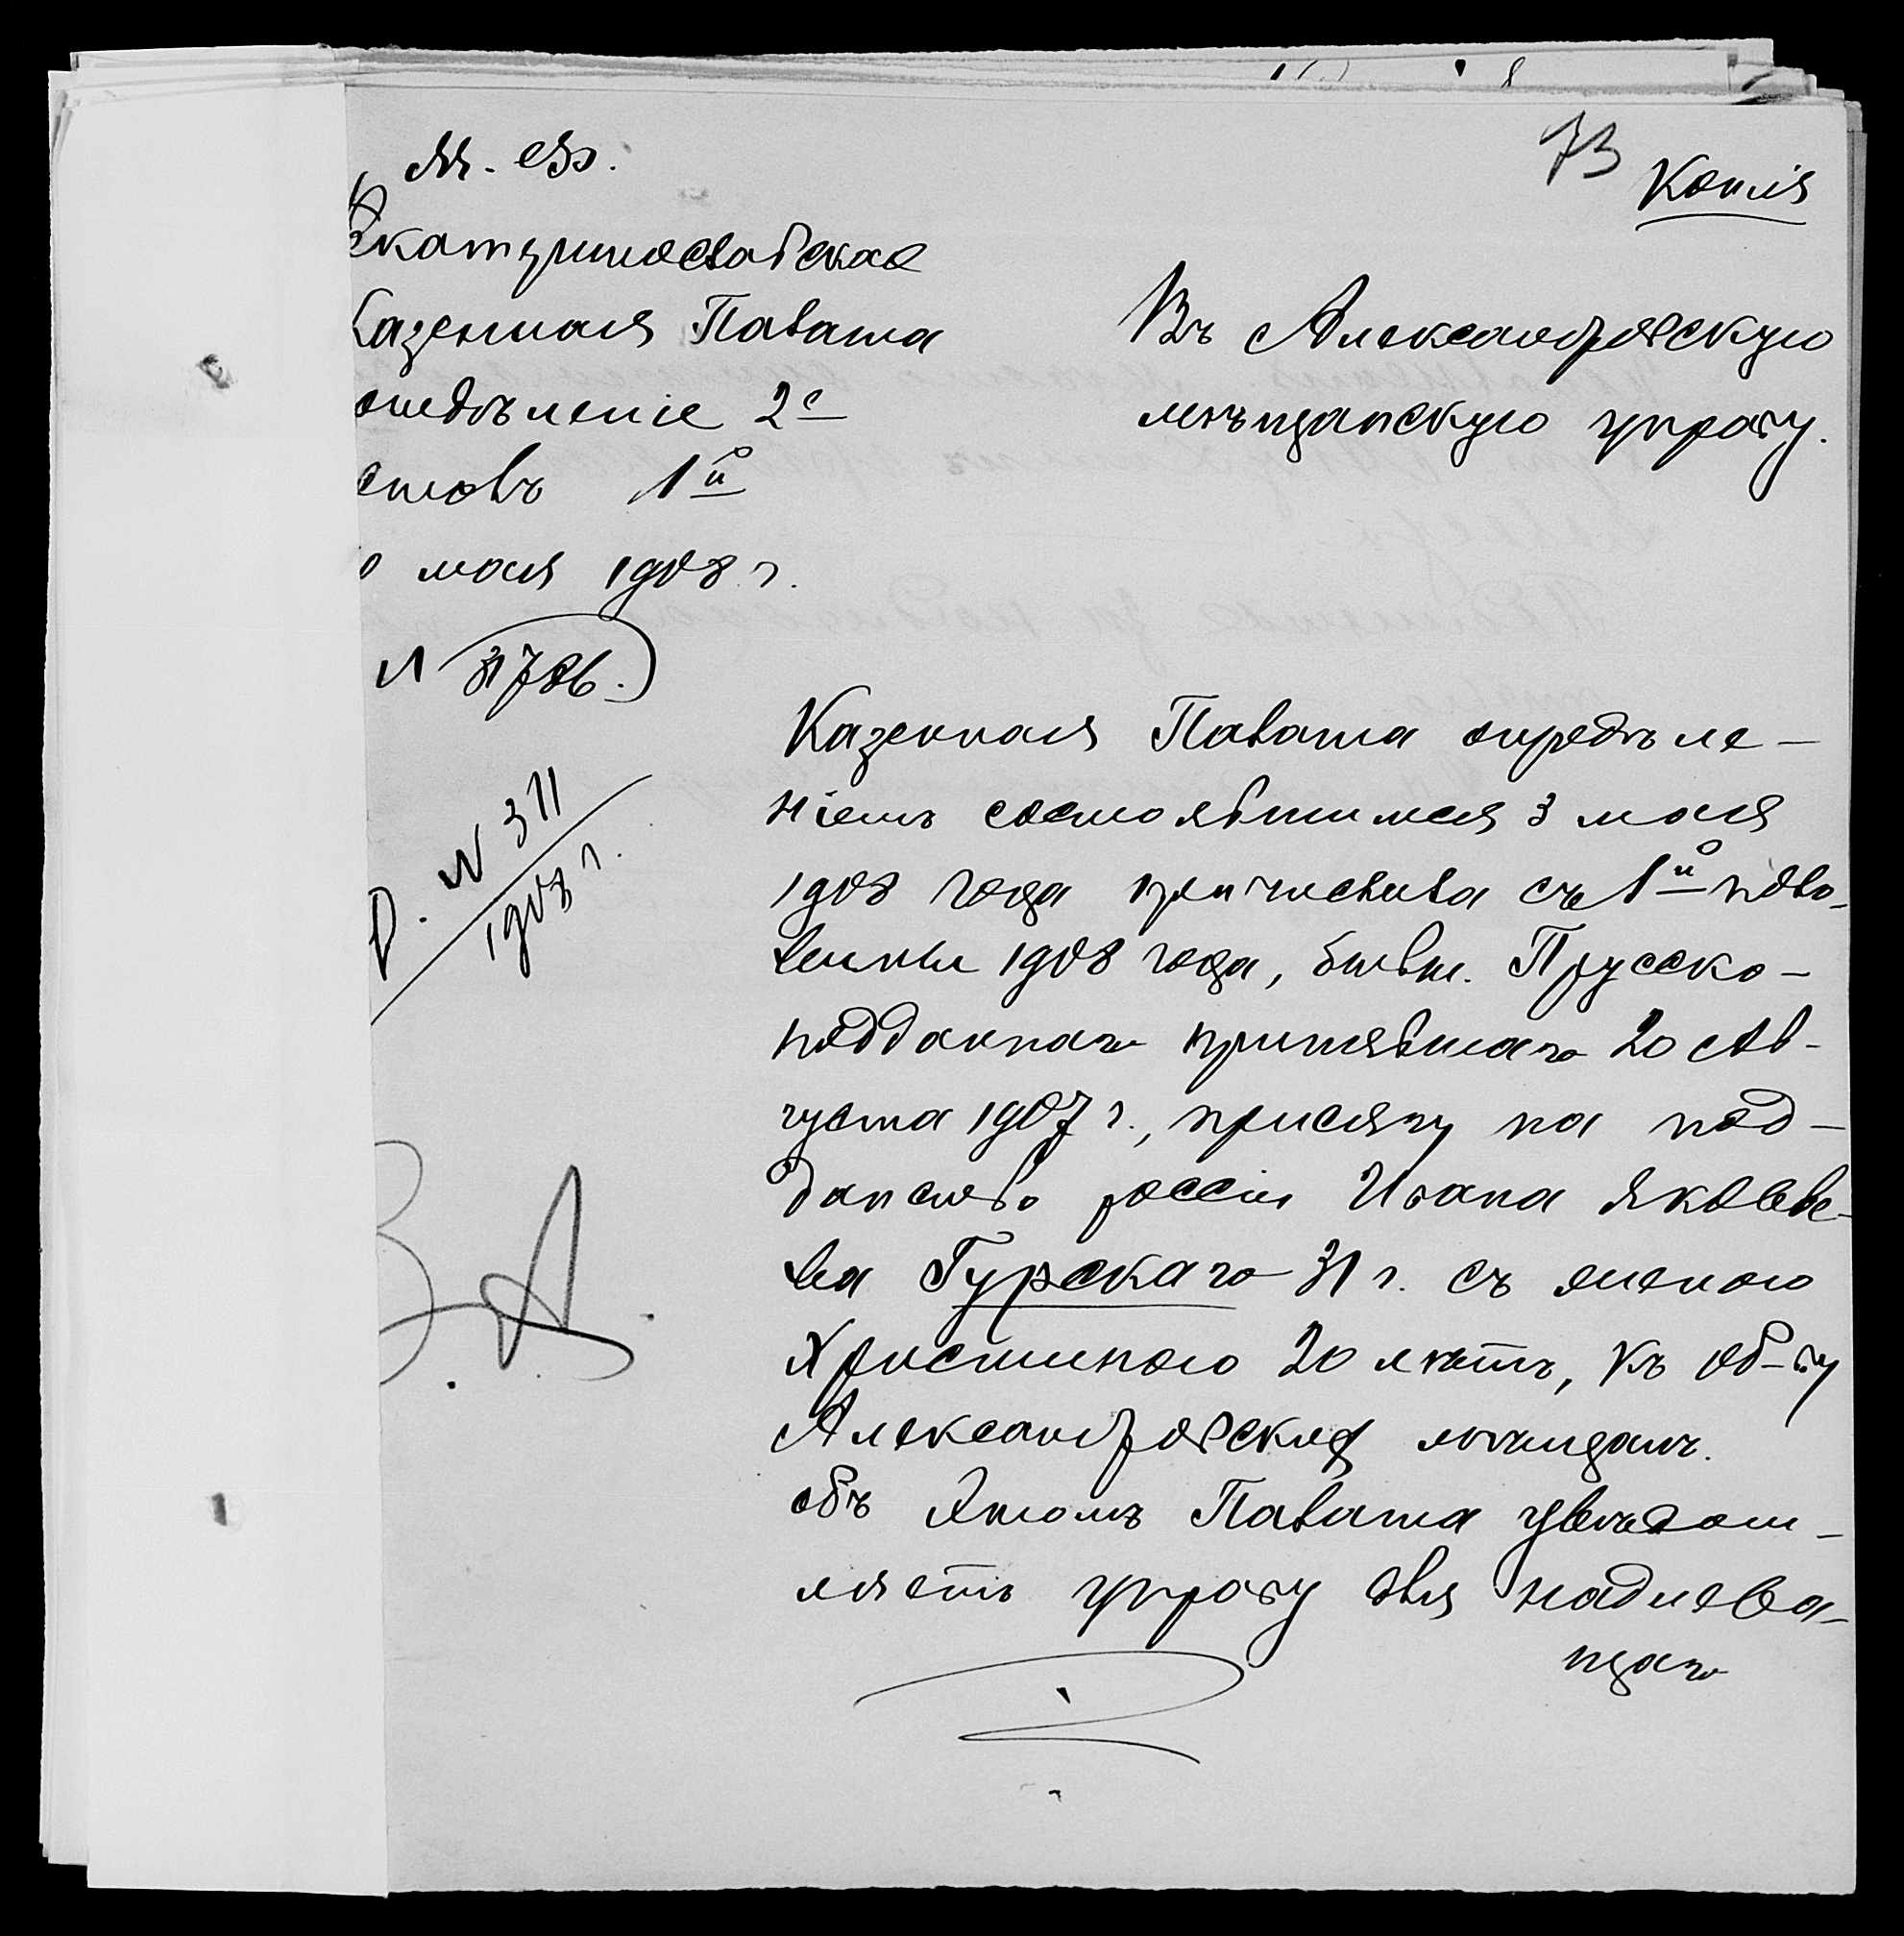 73
Копія
М. Ф.
Екатеринославская
Казенная Палата
отдѣленіе 2е
столъ 1й
мая 1908 г.
№ 31786.
Въ Александровскую
мѣщанскую управу.
Д. № 311
1908 г.
Казенная Палата опредѣле-
ніемъ состоявшимся 3 мая
1908 года причислила съ 1й поло-
вины 1908 года, бывш. Прусско-
подданнаго принявшаго 20 Ав-
густа 1907 г., присягу на под-
данство россіи Ивана Яковле-
ва Гурскаго 31 г. съ женою
Христиною 20 лѣтъ, къ об-ву
Александровскихъ мѣщанъ.
объ этомъ Палата увѣдом-
ляетъ управу для надлежа-
щаго